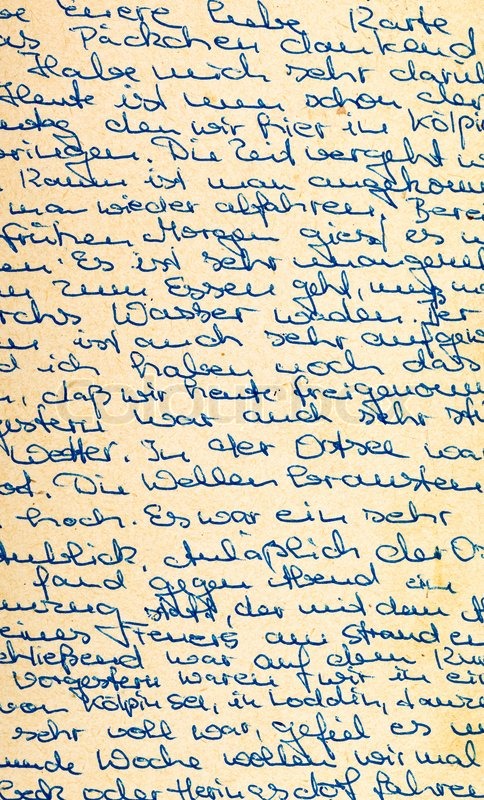 be Euere liebe Karte
as Päckchen dankend
Habe mich sehr darüb
Heute ist nun schon der
ntag den wir hier in Kölpin
bringen. Die Zeit vergeht w
Kaum ist man angekomm
man wieder abfahren. Berei
frühen Morgen giest es u
en. Es ist sehr unangeneh
n zum Essen geht, muß ma
rchs Wasser waden. Der
n ist auch sehr aufgew
d ich haben noch das
n, daß wir heute freigenomm
gestern war auch sehr stü
Wetter. In der Ostsee war
od. Die Wellen brausten
hoch. Es war ein sehr
Anblick. Anläßlich der Os
fand gegen Abend ein
mzug statt, der mit dem A
eines Feuers am Strand en
chließend war auf dem Kur
Vorgestern waren wir in ein
von Kölpinsee, in Loddin, tanze
sehr voll war, gefiel es u
Woche wollen wir mal
eck oder Heringsdorf fahren